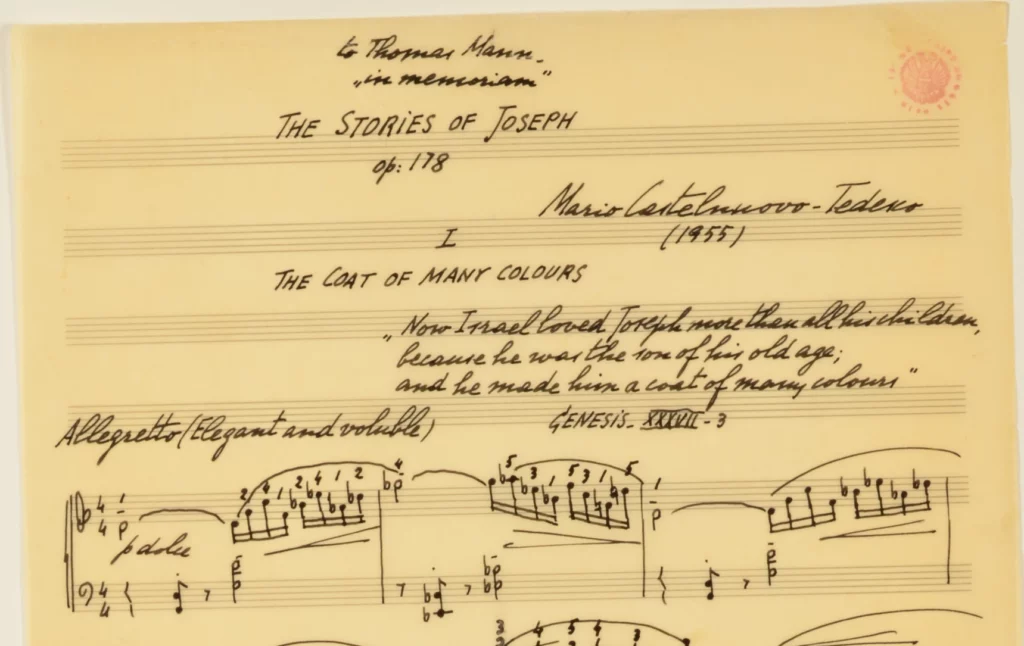 to Thomas Mann.
„in memoriam"
THE STORIES OF JOSEPH
op: 178
Mario Castelnuovo-Tedesco
(1955)
I
THE COAT OF MANY COLOURS
„Now Israel loved Joseph more than all his children,
because he was the son of his old age;
and he made him a coat of many colours"
GENESIS_ XXXVII - 3
Allegretto (Elegant and voluble)
4 4 1 2 4 1 2 4 1 2 4 5 3 1 5 3 1 5 1
p dolce
4 4
3 4 5 4 3
2